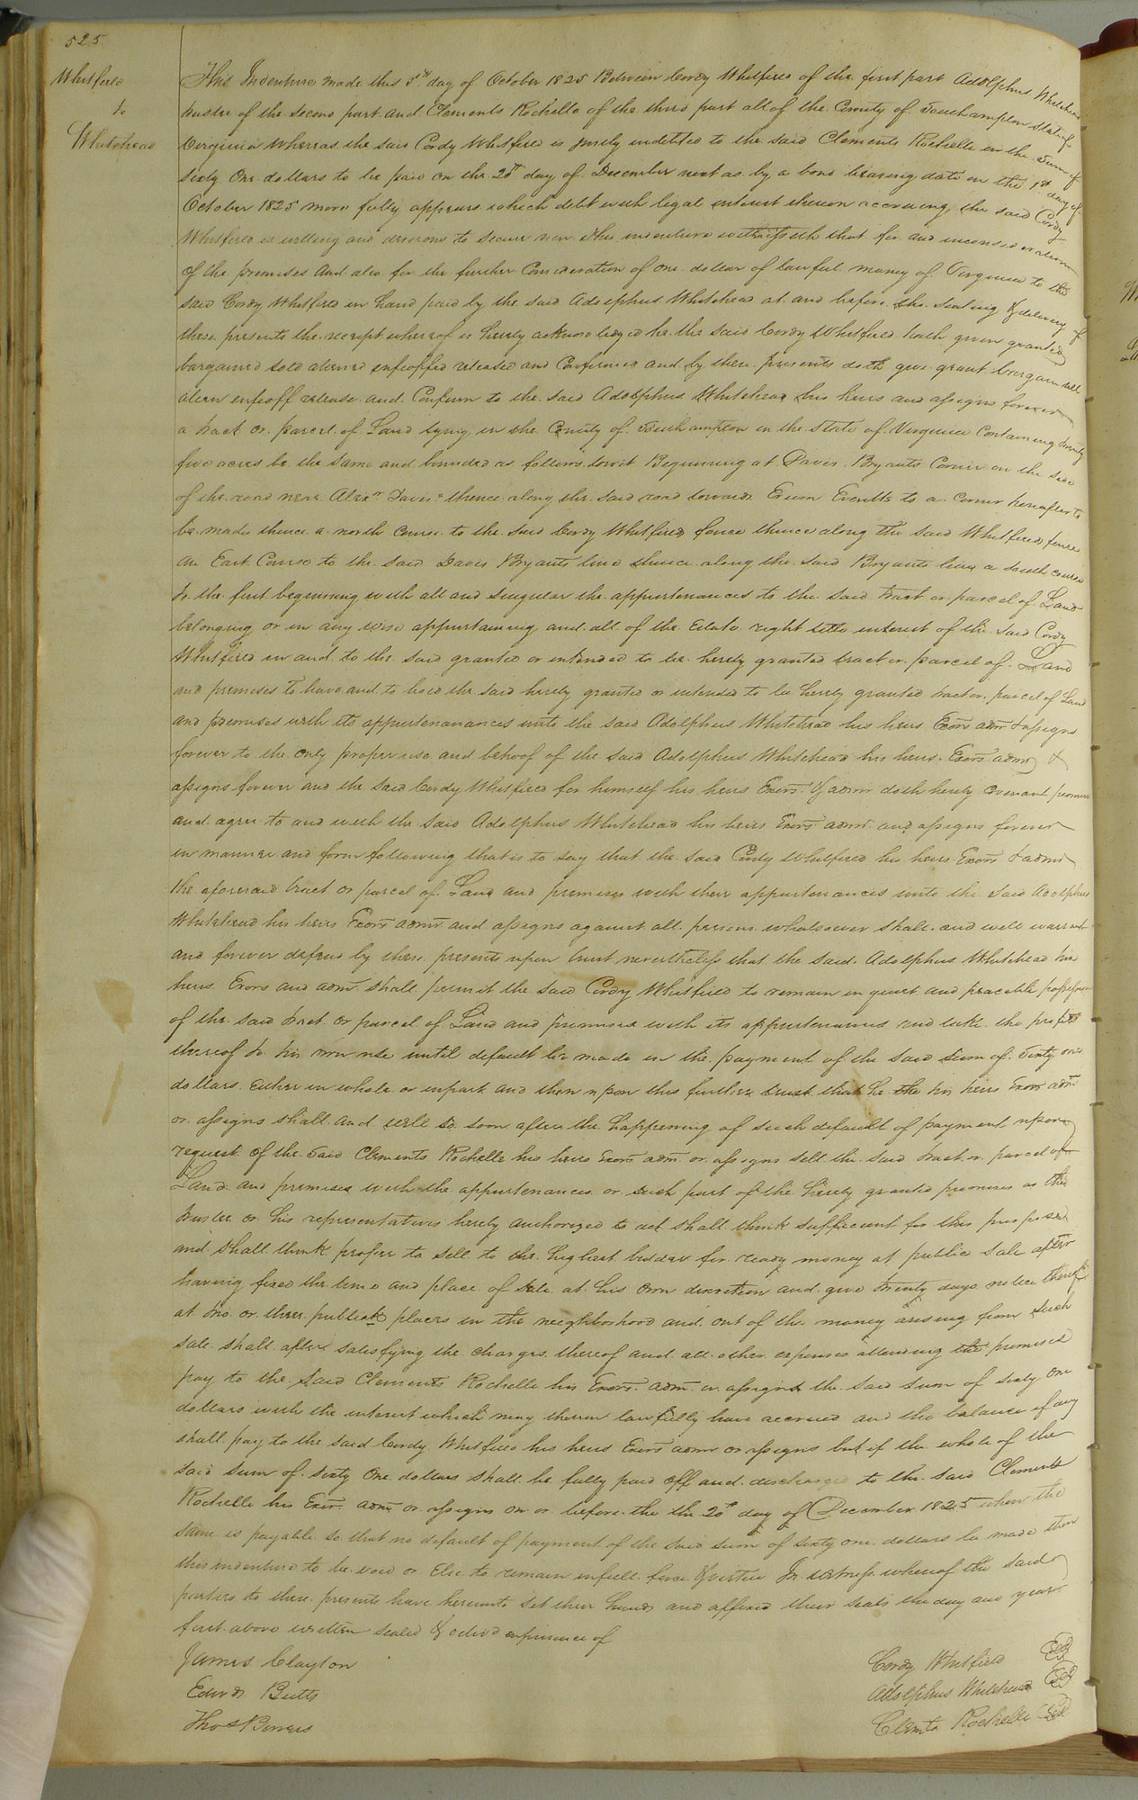 525
Whitfield
to
Whitehead
This Indenture made this 5th day of October 1825 Between Cordy Whitfield of the first part Adolphus Whitehead
trustee of the second part and Clements Rochelle of the third part all of the County of Southampton State of
Virginia Whereas the said Cordy Whitfield is justly indebted to the said Clements Rochelle in the Sum of
sixty One dollars to be paid on the 20th day of December next as by a bond bearing date on the 1st day of
October 1825 more fully appears which debt with legal interest thereon accruing the said Cordy
Whitfield is willing and desirous to secure now this indenture witnesseth that for and inconsideration
of the premises And also for the further Consideration of one dollar of lawful money of Virginia to the
said Cordy Whitfield in hand paid by the said Adolphus Whitehead at and before the sealing & delivery of
these presents the receipt whereof is hereby acknowledged he the said Cordy Whitfield hath given granted
bargained sold aliened enfeoffed released and Confirmed and by these presents doth give grant bargain sell
alien enfeoff release and Confirm to the said Adolphus Whitehead his heirs and assigns forever
a tract or parcel of Land lying in the County of Southampton in the State of Virginia Containing twenty
five acres be the same and bounded as follows towit Beginning at Davis Bryants Corner on the side
of the road near Alexr Davis' thence along the said road towards Exum Everetts to a corner hereafter to
be made thence a north Course to the said Cordy Whitfield fence thence along the said Whitfield fence
an East Course to the said Davis Bryants line thence along the said Bryants line a South course
to the first beginning with all and singular the appurtenances to the said tract or parcel of Land
belonging or in any wise appertaining and all of the Estate right title interest of the said Cordy
Whitfield in and to the said granted or intended to be hereby granted tract or parcel of Land
and premises To have and to hold the said hereby granted or intended to be hereby granted tract or parcel of Land
and premises with its appurtenanances unto the said Adolphus Whitehead his heirs Exors adm & assigns
forever to the only proper use and behoof of the said Adolphus Whitehead his heirs Exors adm &
assigns forever and the said Cordy Whitfield for himself his heirs Exors & adm doth hereby covenant promise
and agree to and with the said Adolphus Whitehead his heirs Exors adm and assigns forever
in manner and form following that is to say that the said Cordy Whitfield his heirs Exors & adm
the aforesaid tract or parcel of Land and premises with their appurtenances unto the said Adolphus
Whitehead his heirs Exors adm and assigns against all persons whatsoever shall and will warrant
and forever defend by these presents upon trust nevertheless that the said Adolphus Whitehead his
heirs Exors and adm shall permit the said Cordy Whitfield to remain in quiet and peaceble possession
of the said tract or parcel of Land and premises with its appurtenances and take the profits
thereof to his own use until default be made in the payment of the said sum of Sixty one
dollars either in whole or inpart and then upon this further trust that he the his heirs Exors adm
or assigns shall and will so soon after the happening of such default of payment upon
request of the said Clements Rochelle his heirs Exors adm or assigns sell the said tract or parcel of
Land and premises with the appurtenances or such part of the hereby granted premises as the
trustee or his representatives hereby authorized to act shall think sufficient for this purpose
and shall think proper to sell to the highest bidder for ready money at public sale after
having fixed the time and place of sale at his own discretion and give twenty days notice thereof
at two or three publick places in the neighborhood and out of the money arising from such
sale shall after satisfying the charges thereof and all other expenses attending the premises
pay to the said Clements Rochelle his Exors adm or assigns the said sum of sixty one
dollars with the interest which may thereon lawfully have accrued and the balance if any
shall pay to the said Cordy Whitfield his heirs Exors adm or assigns but if the whole of the
said sum of sixty one dollars shall be fully paid off and discharged to the said Clements
Rochelle his Exors adm or assigns on or before the the 20th day of December 1825 when the
same is payable so that no default of payment of the said sum of sixty one dollars be made then
this indenture to be void or Else to remain infull force & virtue In witness whereof the said
parties to these presents have hereunto set their hands and affixed their seals the day and year
first above written sealed & deliv'd inpresence of
James Clayton
Edwd Butts
Thos Bowers
Cordy Whitfield
Adolphus Whitehead
Clemts Rochelle